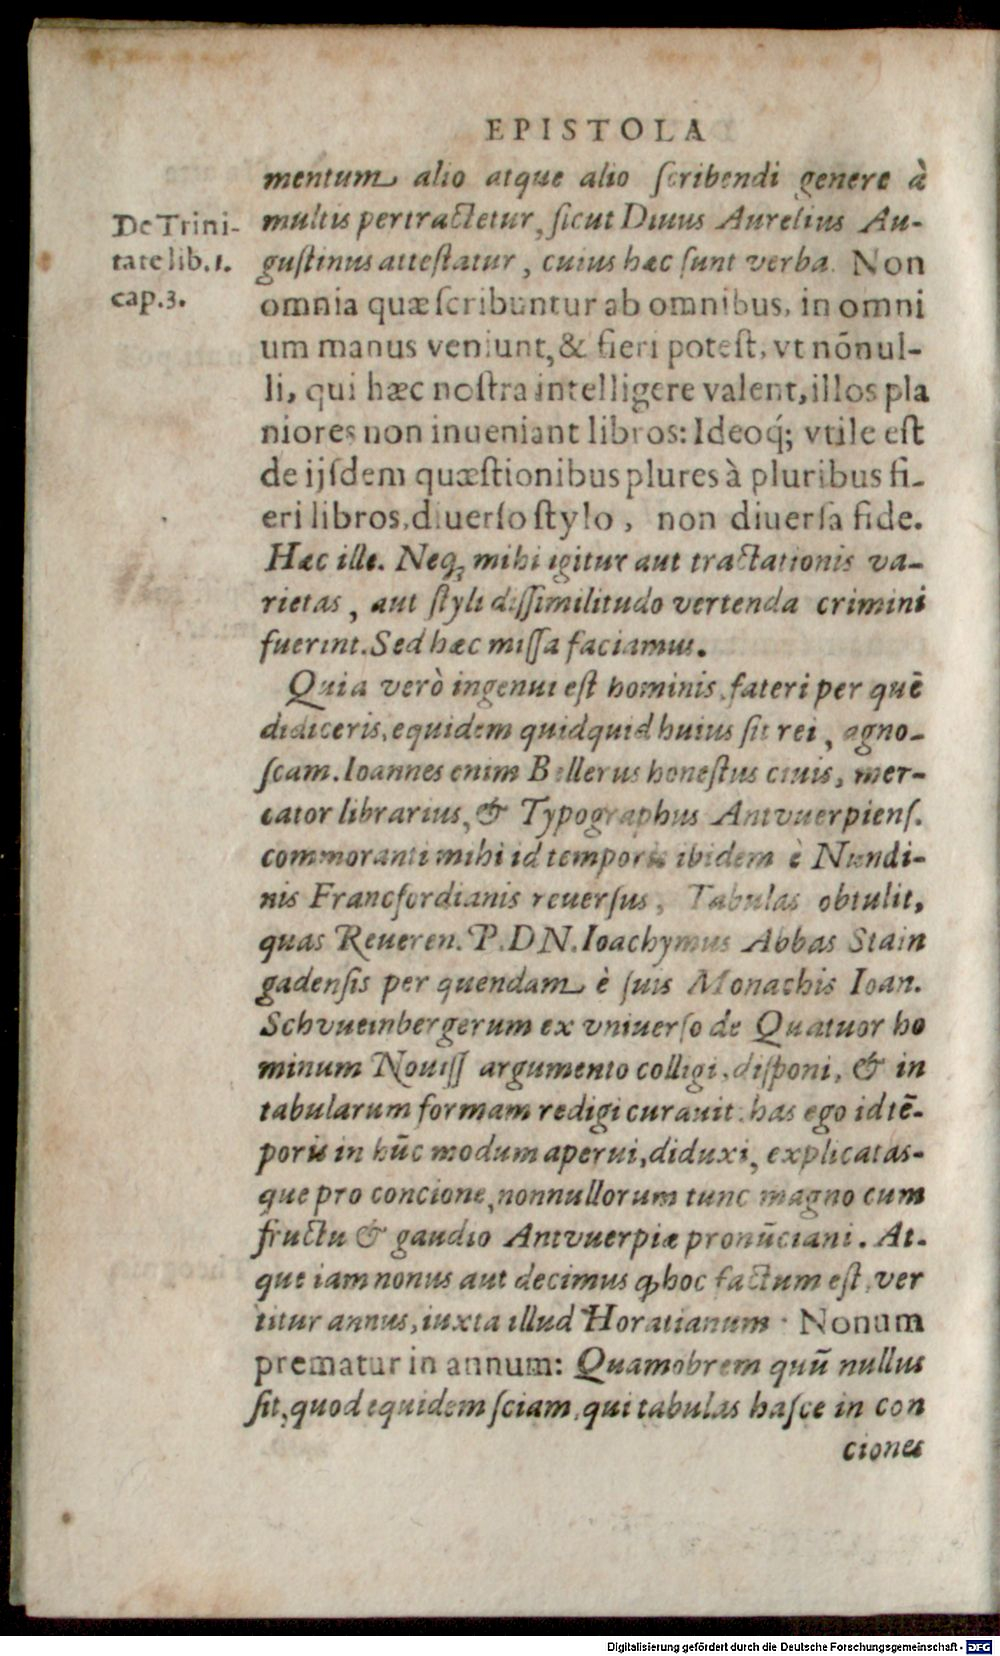 EPISTOLA
mentum alio atque alio ſcribendi genere à
multis pertractetur, ſicut Diuus Aurelius Au-
guſtinus atteſtatur, cuius hæc ſunt verba. Non
omnia quæ ſcribuntur ab omnibus, in omni
um manus veniunt, & fieri poteſt, vt nõnul-
li, qui hæc noſtra intelligere valent, illos pla
niores non inueniant libros: Ideoq́; vtile eſt
de ijſdem quæſtionibus plures à pluribus fi-
eri libros, diuerſo ſtylo, non diuerſa fide.
Hæc ille. Neq; mihi igitur aut tractationis va-
rietas, aut ſtyli diſſimilitudo vertenda crimini
fuerint. Sed hæc miſſa faciamus.
De Trini-
tate lib. 1.
cap. 3.
Quia verò ingenui eſt hominis, fateri per quẽ
didiceris, equidem quidquid huius ſit rei, agno-
ſcam. Ioannes enim Bellerus honeſtus ciuis, mer-
cator librarius, & Typographus Antvuerpienſ.
commoranti mihi id temporis ibidem è Nundi-
nis Francfordianis reuerſus, Tabulas obtulit,
quas Reueren. P. DN. Ioachymus Abbas Stain
gadenſis per quendam è ſuis Monachis Ioan.
Schvueinbergerum ex vniuerſo de Quatuor ho
minum Nouiſſ argumento colligi, diſponi, & in
tabularum formam redigi curauit: has ego id tẽ-
poris in hũc modum aperui, diduxi, explicatas-
que pro concione, nonnullorum tunc magno cum
fructu & gaudio Antvuerpiæ pronũciani. At-
que iam nonus aut decimus ꝙ hoc factum eſt, ver
titur annus, iuxta illud Horatianum: Nonum
prematur in annum: Quamobrem quũ nullus
ſit, quod equidem ſciam, qui tabulas haſce in con
ciones
Digitalisierung gefördert durch die Deutsche Forschungsgemeinschaft - DFG